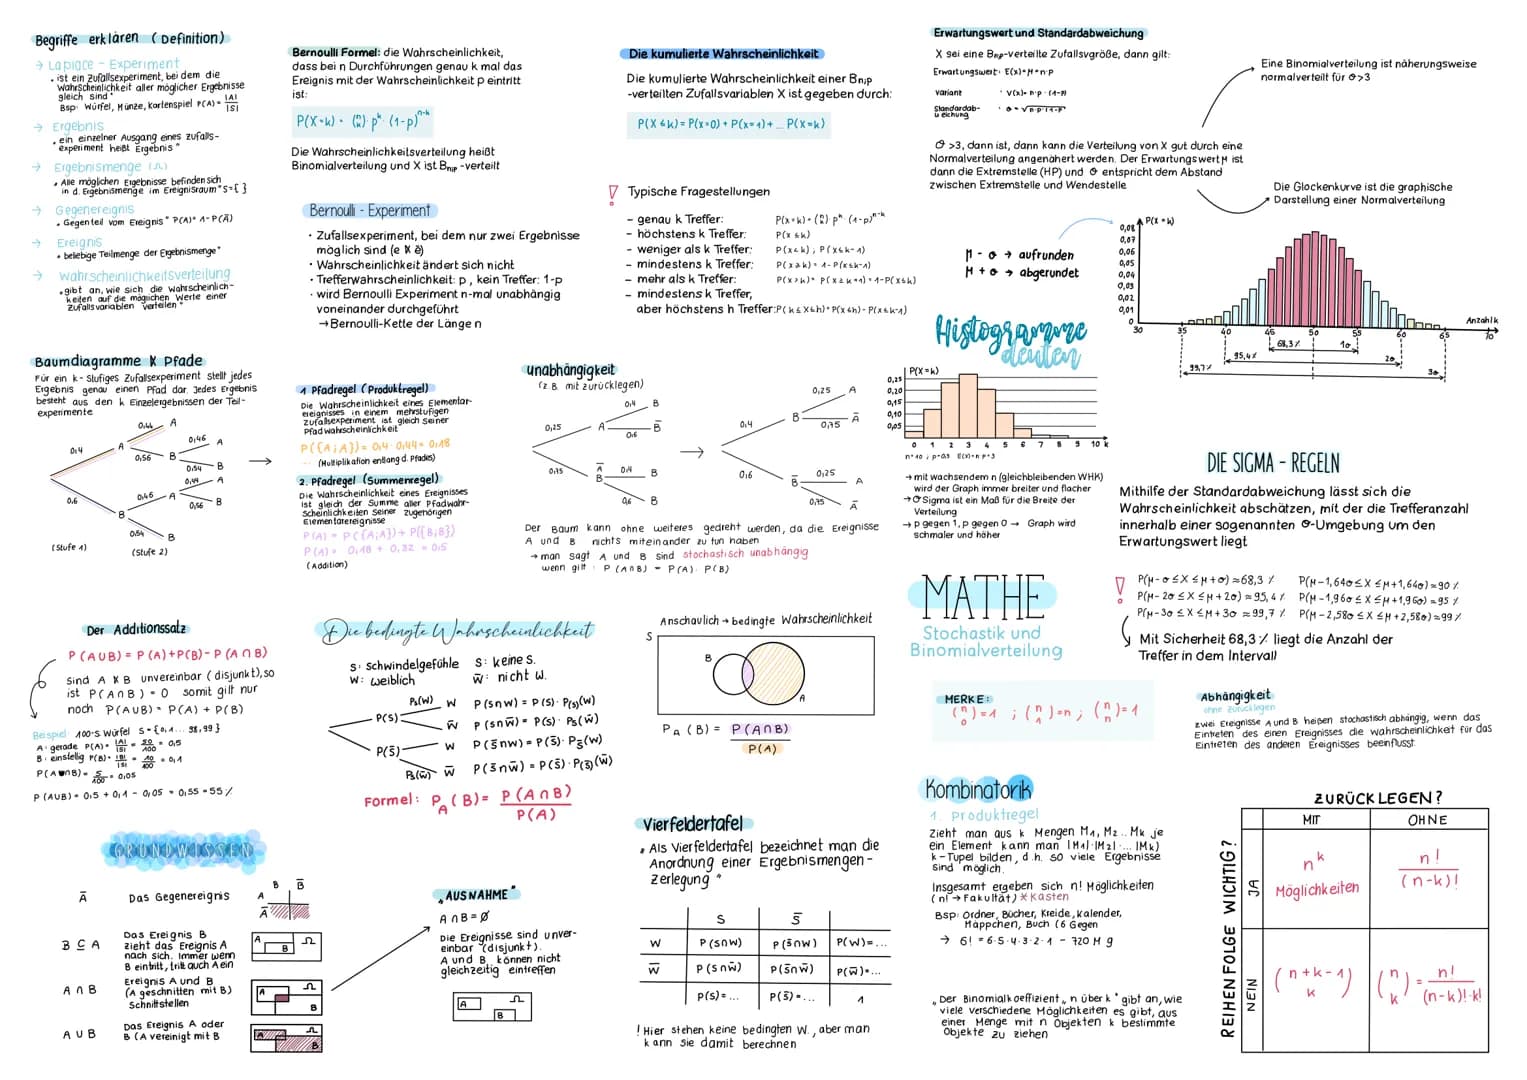 Begriffe erklären ( Definition)
→ Laplace - Experiment
• ist ein Zufallsexperiment, bei dem die
Wahrscheinlichkeit aller möglicher Ergebnisse
gleich sind "
Bsp: Würfel, Münze, Kartenspiel P(A) = |A| / |S|
→ Ergebnis
• ein einzelner Ausgang eines zufalls-
experiment heißt Ergebnis "
→ Ergebnismenge (Ω)
• Alle möglichen Ergebnisse befinden sich
in d. Ergebnismenge im Ereignisraum "S={ }
→ Gegenereignis
• Gegenteil vom Ereignis " P(A)= 1-P(Ā)
→ Ereignis
• beliebige Teilmenge der Ergebnismenge"
→ Wahrscheinlichkeitsverteilung
• gibt an, wie sich die Wahrscheinlich-
keiten auf die möglichen Werte einer
Zufallsvariablen verteilen "
Bernoulli Formel: die Wahrscheinlichkeit,
dass bei n Durchführungen genau k mal das
Ereignis mit der Wahrscheinlichkeit p eintritt
ist:
P(X=k) = (n k) · p^k · (1-p)^n-k
Die Wahrscheinlichkeitsverteilung heißt
Binomialverteilung und X ist Bn;p -verteilt
Bernoulli - Experiment
· Zufallsexperiment, bei dem nur zwei Ergebnisse
möglich sind (e & ē)
· Wahrscheinlichkeit ändert sich nicht
· Trefferwahrscheinlichkeit: p , kein Treffer: 1-p
· wird Bernoulli Experiment n-mal unabhängig
voneinander durchgeführt
→ Bernoulli-Kette der Länge n
Die kumulierte Wahrscheinlichkeit
Die kumulierte Wahrscheinlichkeit einer Bn;p
-verteilten Zufallsvariablen X ist gegeben durch:
P(X ≤ k) = P(x=0) + P(x=1) + ... P(X=k)
! Typische Fragestellungen
- genau k Treffer: P(x=k) = (n k) p^k · (1-p)^n-k
- höchstens k Treffer: P(x ≤k)
- weniger als k Treffer: P(x<k) ; P(x≤k-1)
- mindestens k Treffer: P(x≥k) = 1-P(x≤k-1)
- mehr als k Treffer: P(x>k)= P(x≥k+1) = 1-P(x≤k)
- mindestens k Treffer,
aber höchstens h Treffer: P(k≤x≤h)= P(x≤h)- P(x≤k-1)
Erwartungswert und Standardabweichung
X sei eine Bn;p-verteilte Zufallsvgröße, dann gilt:
Erwartungswert: E(x)=μ=n·p
Variant · V(x)= n·p · (1-p)
Standardab-
weichung · σ = √n·p·(1-p)
Eine Binomialverteilung ist näherungsweise
normalverteilt für σ>3
σ >3, dann ist, dann kann die Verteilung von X gut durch eine
Normalverteilung angenähert werden. Der Erwartungswert μ ist
dann die Extremstelle (HP) und σ entspricht dem Abstand
zwischen Extremstelle und Wendestelle
Die Glockenkurve ist die graphische
Darstellung einer Normalverteilung
μ - σ → aufrunden
μ + σ → abgerundet
P(X = k)
0,08
0,07
0,06
0,05
0,04
0,03
0,02
0,01
0
30 35 40 45 50 55 60 65 70
Anzahl k
68,3 % 1σ
95,4% 2σ
99,7 % 3σ
Histogramme
deuten
P(X=k)
0,25
0,20
0,15
0,10
0,05
0 1 2 3 4 5 6 7 8 9 10 k
→ mit wachsendem n (gleichbleibenden WHK)
wird der Graph immer breiter und flacher
→ σ Sigma ist ein Maß für die Breite der
Verteilung
→ p gegen 1, p gegen 0 → Graph wird
schmaler und höher
DIE SIGMA - REGELN
Mithilfe der Standardabweichung lässt sich die
Wahrscheinlichkeit abschätzen, mit der die Trefferanzahl
innerhalb einer sogenannten σ-Umgebung um den
Erwartungswert liegt
! P(μ-σ≤X≤μ+σ)≈68,3 % P(μ-1,64σ≤X≤μ+1,64σ)≈90 %
P(μ-2σ≤X≤μ+2σ)≈95,4% P(μ-1,96σ≤X≤μ+1,96σ)≈95 %
P(μ-3σ≤X≤μ+3σ≈99,7 % P(μ-2,58σ≤X≤μ+2,58σ)≈99%
Mit Sicherheit 68,3 % liegt die Anzahl der
Treffer in dem Intervall
Baumdiagramme & Pfade
Für ein k- stufiges Zufallsexperiment stellt jedes
Ergebnis genau einen Pfad dar. Jedes Ergebnis
besteht aus den k Einzelergebnissen der Teil-
experimente
0,4 A 0,44 A
0,56 B 0,46 A
0,54 B
0,6 B 0,46 A 0,44 A
0,56 B
0,54 B
(Stufe 1) (Stufe 2)
1 Pfadregel (Produktregel)
Die Wahrscheinlichkeit eines Elementar-
ereignisses in einem mehrstufigen
Zufallsexperiment ist gleich seiner
Pfadwahrscheinlichkeit
P({A;A})= 0,4·0,44= 0,18
(Multiplikation entlang d. Pfades)
2. Pfadregel (Summenregel)
Die Wahrscheinlichkeit eines Ereignisses
ist gleich der Summe aller Pfadwahr-
scheinlichkeiten seiner zugehörigen
Elementarereignisse
P(A) = P({A;A}) + P({B;B})
P(A)= 0,18 + 0,32 = 0,5
(Addition)
unabhängigkeit
(z.B. mit zurücklegen)
0,25 A 0,4 B
0,6 B̄
0,75 Ā B 0,4 B
0,6 B
0,4 B 0,25 A
0,75 Ā
0,6 B̄ 0,25 A
0,75 Ā
Der Baum kann ohne weiteres gedreht werden, da die Ereignisse
A und B nichts miteinander zu tun haben
→ man sagt A und B sind stochastisch unabhängig
wenn gilt : P (A∩B) = P(A)· P(B)
Der Additionssatz
P(A∪B) = P(A)+P(B)- P(A∩B)
Sind A & B unvereinbar (disjunkt), so
ist P(A∩B) = 0 somit gilt nur
noch P(A∪B)= P(A) + P(B)
Beispiel: 100-S Würfel S= {0,1 ... 98,99 }
A: gerade P(A)= |A| / |S| = 50 / 100 = 0,5
B: einstellig P(B)= |B| / |S| = 10 / 100 = 0,1
P(A∩B)= 5 / 100 = 0,05
P(A∪B)= 0,5 + 0,1 - 0,05 = 0,55 =55 %
Die bedingte Wahrscheinlichkeit
S: schwindelgefühle S̄: keine S.
W: weiblich W̄: nicht W.
P(S) Ps(W) W P(S∩W) = P(S)· P(s)(W)
W̄ P(S∩W̄) = P(S)· Ps(W̄)
P(S̄) W P(S̄∩W)=P(S̄)·Ps̄(W)
Ps̄(W̄) W̄ P(S̄∩W̄)=P(S̄)·P(s̄)(W̄)
Formel: P A (B)= P(A∩B) / P(A)
Anschaulich → bedingte Wahrscheinlichkeit
S
B
A
P A (B) = P(A∩B) / P(A)
MATHE
Stochastik und
Binomialverteilung
MERKE:
(n 0)=1 ; (n 1)=n ; (n n)=1
Abhängigkeit
ohne zurücklegen
zwei Ereignisse A und B heißen stochastisch abhängig, wenn das
Eintreten des einen Ereignisses die wahrscheinlichkeit für das
Eintreten des anderen Ereignisses beeinflusst.
GRUNDWISSEN
Ā Das Gegenereignis
B B̄
A
Ā
B ⊆ A Das Ereignis B
zieht das Ereignis A
nach sich. Immer wenn
B eintritt, tritt auch A ein
A B Ω
A ∩ B Ereignis A und B
(A geschnitten mit B)
Schnittstellen
A Ω B
A ∪ B Das Ereignis A oder
B (A vereinigt mit B
A Ω B
„AUSNAHME"
A∩B=∅
Die Ereignisse sind unver-
einbar (disjunkt).
A und B können nicht
gleichzeitig eintreffen
A Ω B
Vierfeldertafel
„ Als Vierfeldertafel bezeichnet man die
Anordnung einer Ergebnismengen-
zerlegung "
S S̄
W P(S∩W) P(S̄∩W) P(W)=...
W̄ P(S∩W̄) P(S̄∩W̄) P(W̄)=...
P(S)=... P(S̄)=... 1
! Hier stehen keine bedingten W., aber man
kann sie damit berechnen
Kombinatorik
1. Produktregel
Zieht man aus k Mengen M1, M2.. Mk je
ein Element kann man |M1|·|M2|·... |Mk)
k-Tupel bilden, d.h. so viele Ergebnisse
sind möglich.
Insgesamt ergeben sich n! Möglichkeiten
(n! → Fakultät) * Kasten
Bsp: Ordner, Bücher, Kreide, Kalender,
Mäppchen, Buch (6 Gegen
→ 6! = 6·5·4·3·2·1 = 720 M g
„ Der Binomialkoeffizient „n über k" gibt an, wie
viele verschiedene Möglichkeiten es gibt, aus
einer Menge mit n Objekten k bestimmte
Objekte zu ziehen
ZURÜCKLEGEN?
MIT OHNE
REIHENFOLGE WICHTIG?
JA n^k Möglichkeiten n! / (n-k)!
NEIN (n+k-1 k) (n k) = n! / (n-k)!·k!